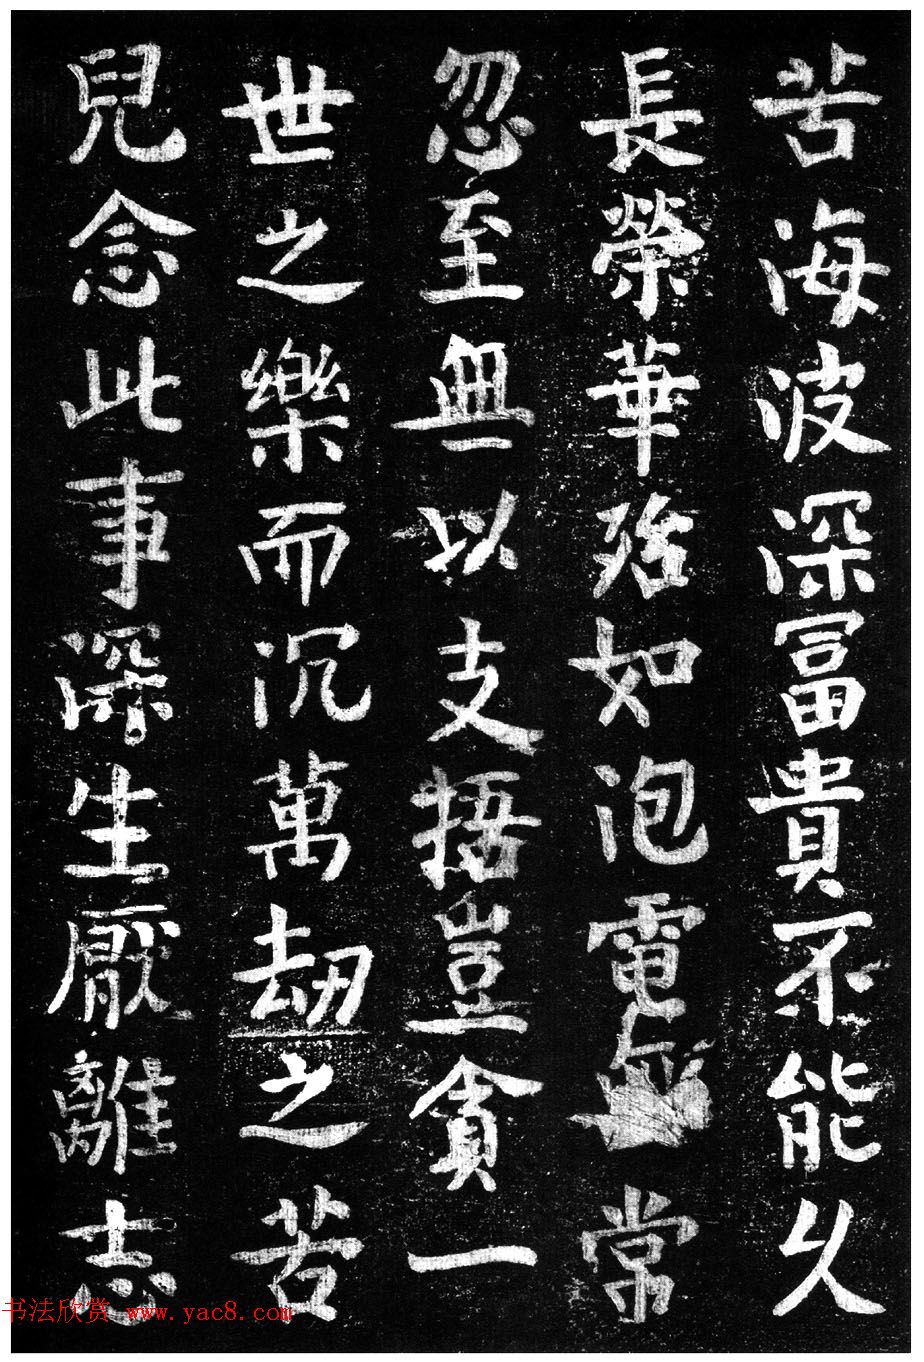 苦海波深冨貴不能久
長榮華殆如泡電無常
忽至無以支捂豈貪一
世之樂而沉萬刧之苦
兒念此事深生厭離志
书法欣赏 www.yac8.com